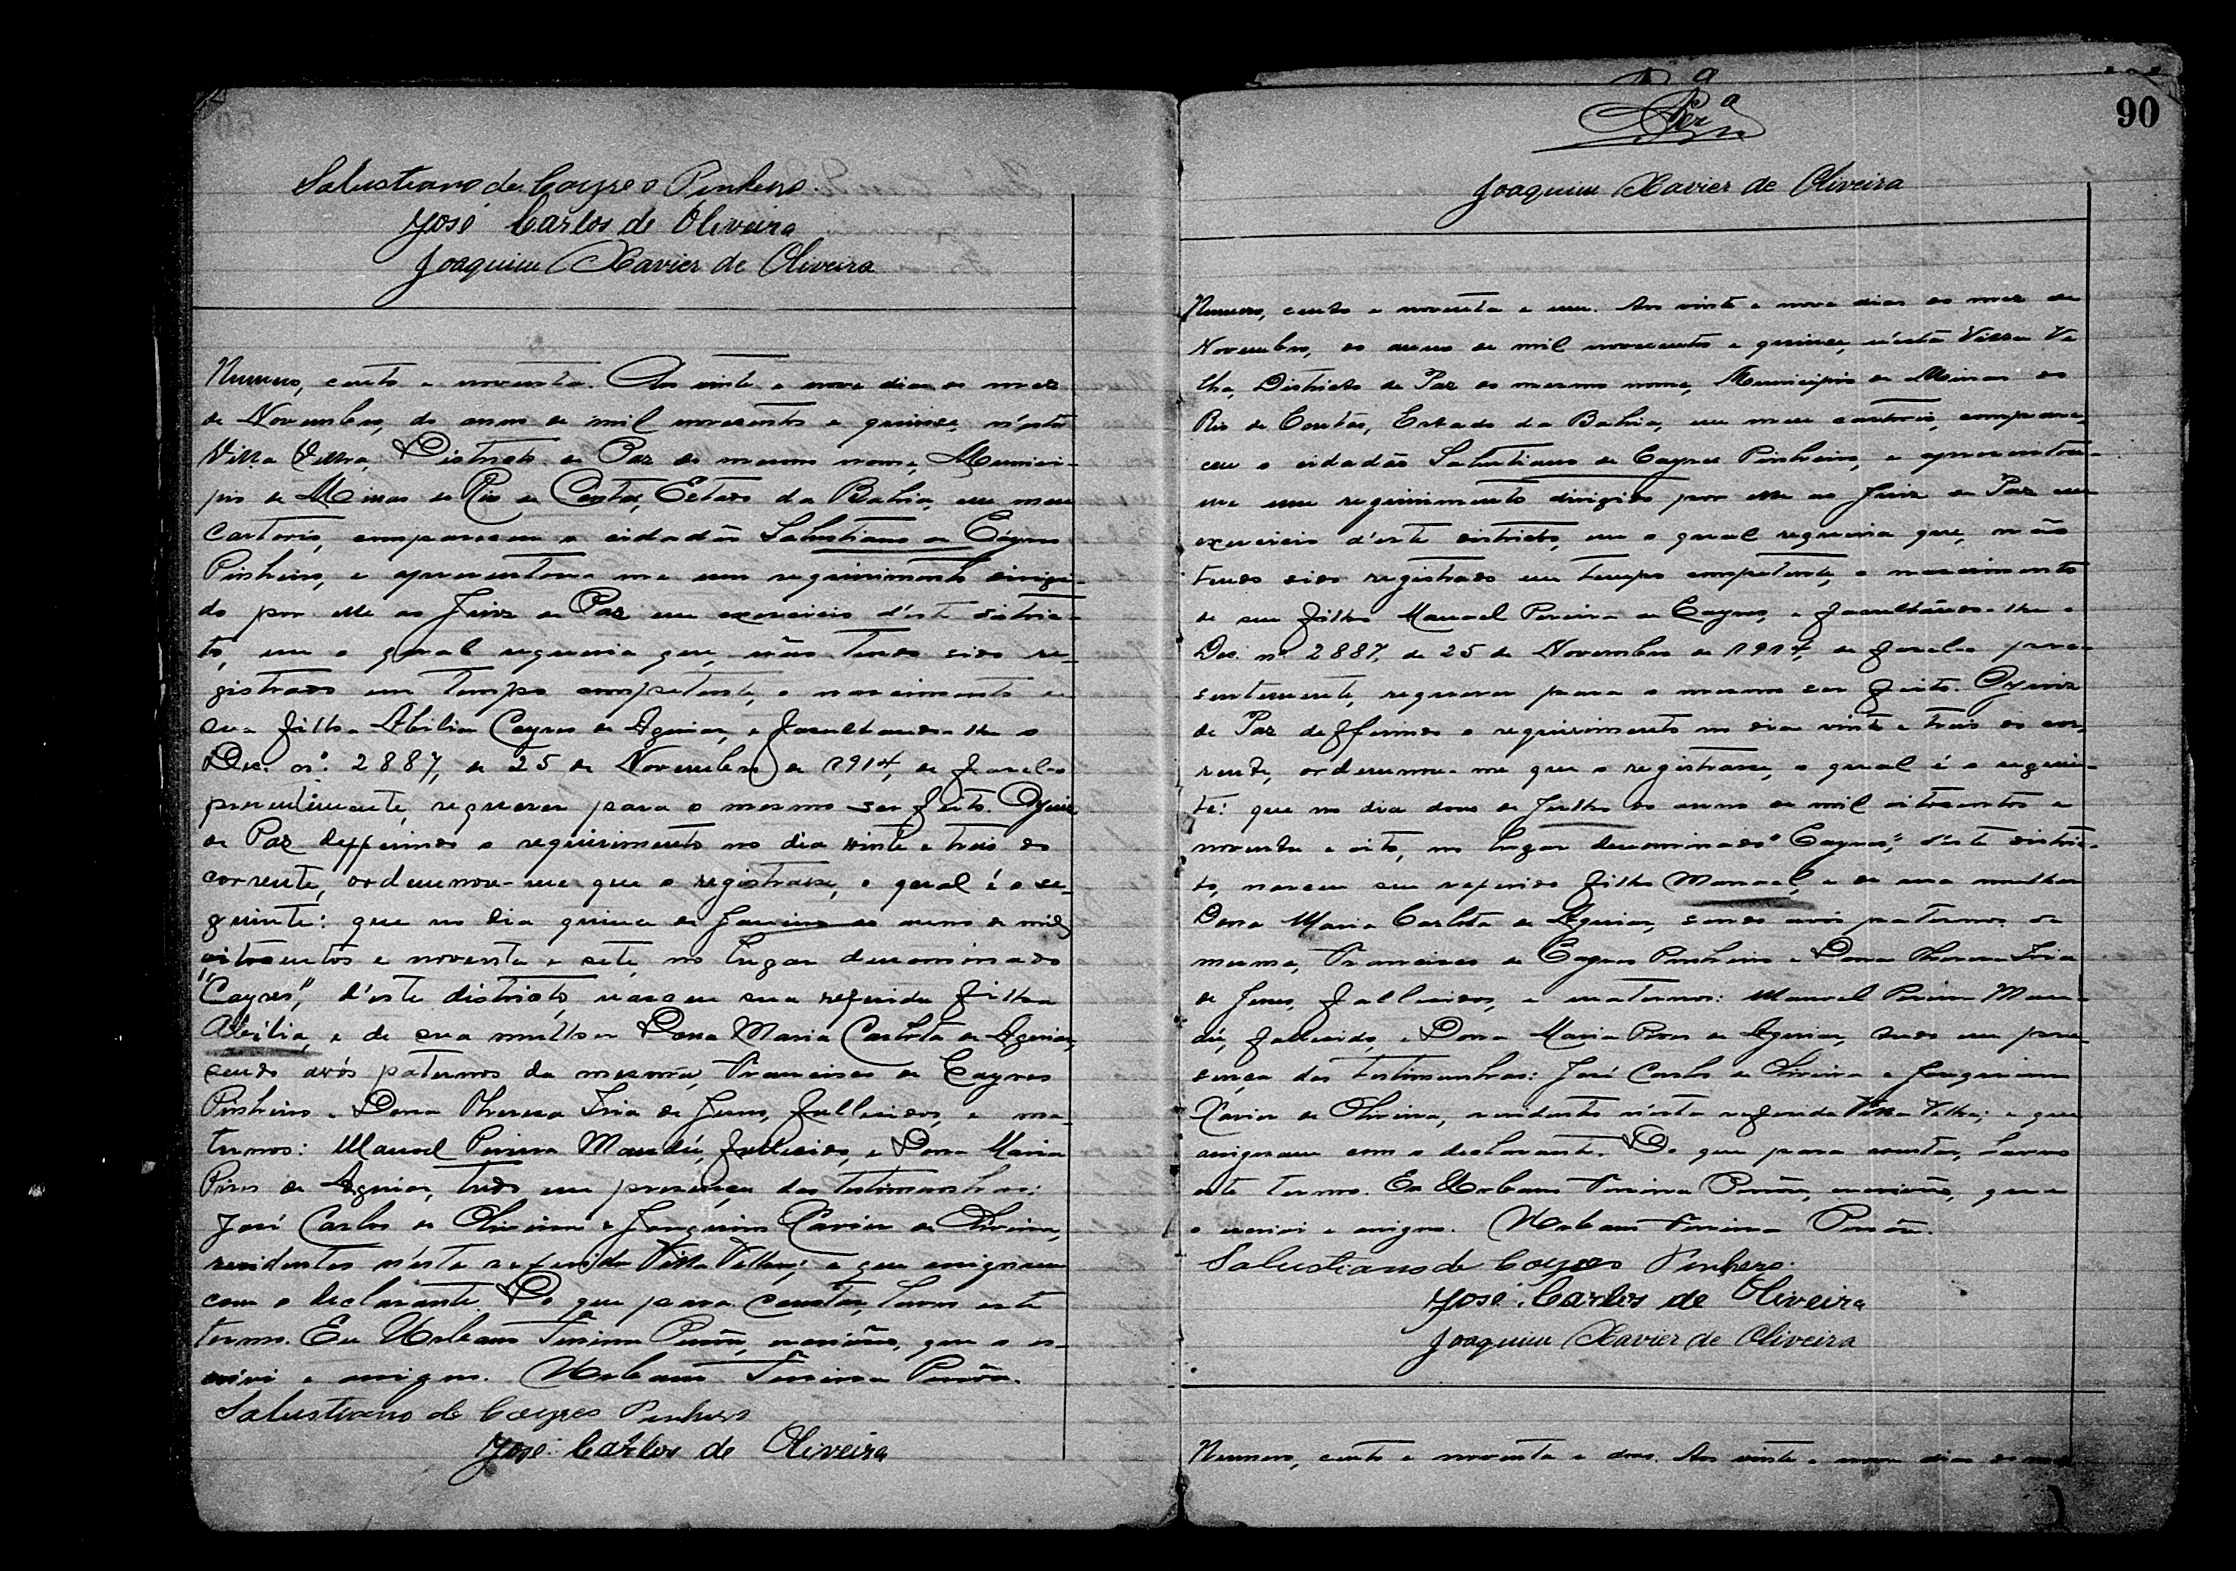 Salustiano de Cayres Pinheiro.
José Carlos de Oliveira
Joaquim Xavier de Oliveira
Numero, cento e noventa. Aos vinte e nove dias do mez
de Novembro, do anno de mil novecentos e quinze, n'esta
Villa Velha, Districto de Paz do mesmo nome, Munici-
pio de Minas do Rio de Contas, Estado da Bahia, em meu
cartorio, compareceu o cidadão Salustiano de Cayres
Pinheiro, e apresentou-me um requirimento dirigi-
do por elle ao Juiz de Paz em exercicio d'este distric-
to, em o qual requeria que, não tendo sido re-
gistrado em tempo competente, o nascimento de
sua filha Abilia Cayres de Aguiar, e facultando-lhe o
Dec. nº. 2887, de 25 de Novembro de 1914, de fazel-o
presentemente, requerer para o mesmo ser feito. O Juiz
de Paz defferindo o requirimento no dia vinte e trez do
corrente, ordennou-me que o registrasse, o qual é o se-
guinte: que no dia quinze de Janeiro do anno de mil
oitocentos e noventa e sete, no lugar denominado
"Cayres", d'este districto, nasceu sua referida filha
Abilia, e de sua mulher Dona Maria Carlota de Aguiar,
sendo avós paternos da mesma, Francisco de Cayres
Pinheiro e Dona Thereza Iria de Jesus, fallecidos, e ma-
ternos: Manoel Pereira Mandú, fallecido, e Dona Maria
Pires de Aguiar, tudo em presença das testimunhas:
José Carlos de Oliveira e Joaquim Xavier de Oliveira,
residentes n'esta referida Villa Velha; e que assignam
com o declarante. Do que para constar, lavro este
termo. Eu Urbano escrivão, que o es-
crivi e assigno. Urbano
Salustiano de Cayres Pinheiro
José Carlos de Oliveira
90
Joaquim Xavier de Oliveira
Numero, cento e noventa e um. Aos vinte e nove dias do mez de
Novembro, do anno de mil novecentos e quinze, n'esta Villa Ve
lha, Districto de Paz do mesmo nome, Municipio de Minas do
Rio de Contas, Estado da Bahia, em meu cartorio, compare-
ceu o cidadão Salustiano de Cayres Pinheiro, e apresentou-
me um requirimento dirigido por elle ao Juiz de Paz em
exercicio d'este districto, em o qual requeria que, não
tendo sido registrado em tempo competente, o nascimento
de seu filho Manoel Pereira de Cayres, e facultando-lhe o
Dec. nº 2887, de 25 de Novembro de 1914, de fazel-o pre-
sentemente, requerer para o mesmo ser feito. O Juiz
de Paz defferindo o requirimento no dia vinte e trez do cor-
rente, ordennou-me que o registrasse, o qual é o seguin-
te: que no dia dous de Julho do anno de mil oitocentos e
noventa e oito, no lugar denominado "Cayres", d'este distric-
to, nasceu seu referido filho Manoel, e de sua mulher
Dona Maria Carlota de Aguiar, sendo avós paternos do
mesmo, Francisco de Cayres Pinheiro e Dona Thereza Iria
de Jesus, fallecidos, e maternos: Manoel Pereira Man-
dú, fallecido, e Dona Maria Pires de Aguiar, tudo em pre-
sença das testimunhas: José Carlos de Oliveira e Joaquim
Xavier de Oliveira, residentes n'esta referida Villa Velha; e que
assignam com o declarante. Do que para constar, lavro
este termo. Eu Urbano escrivão, que
o escrivi e assigno. Urbano
Salustiano de Cayres Pinheiro.
José Carlos de Oliveira
Joaquim Xavier de Oliveira
Numero, cento e noventa e dous. Aos vinte e nove dias do mez